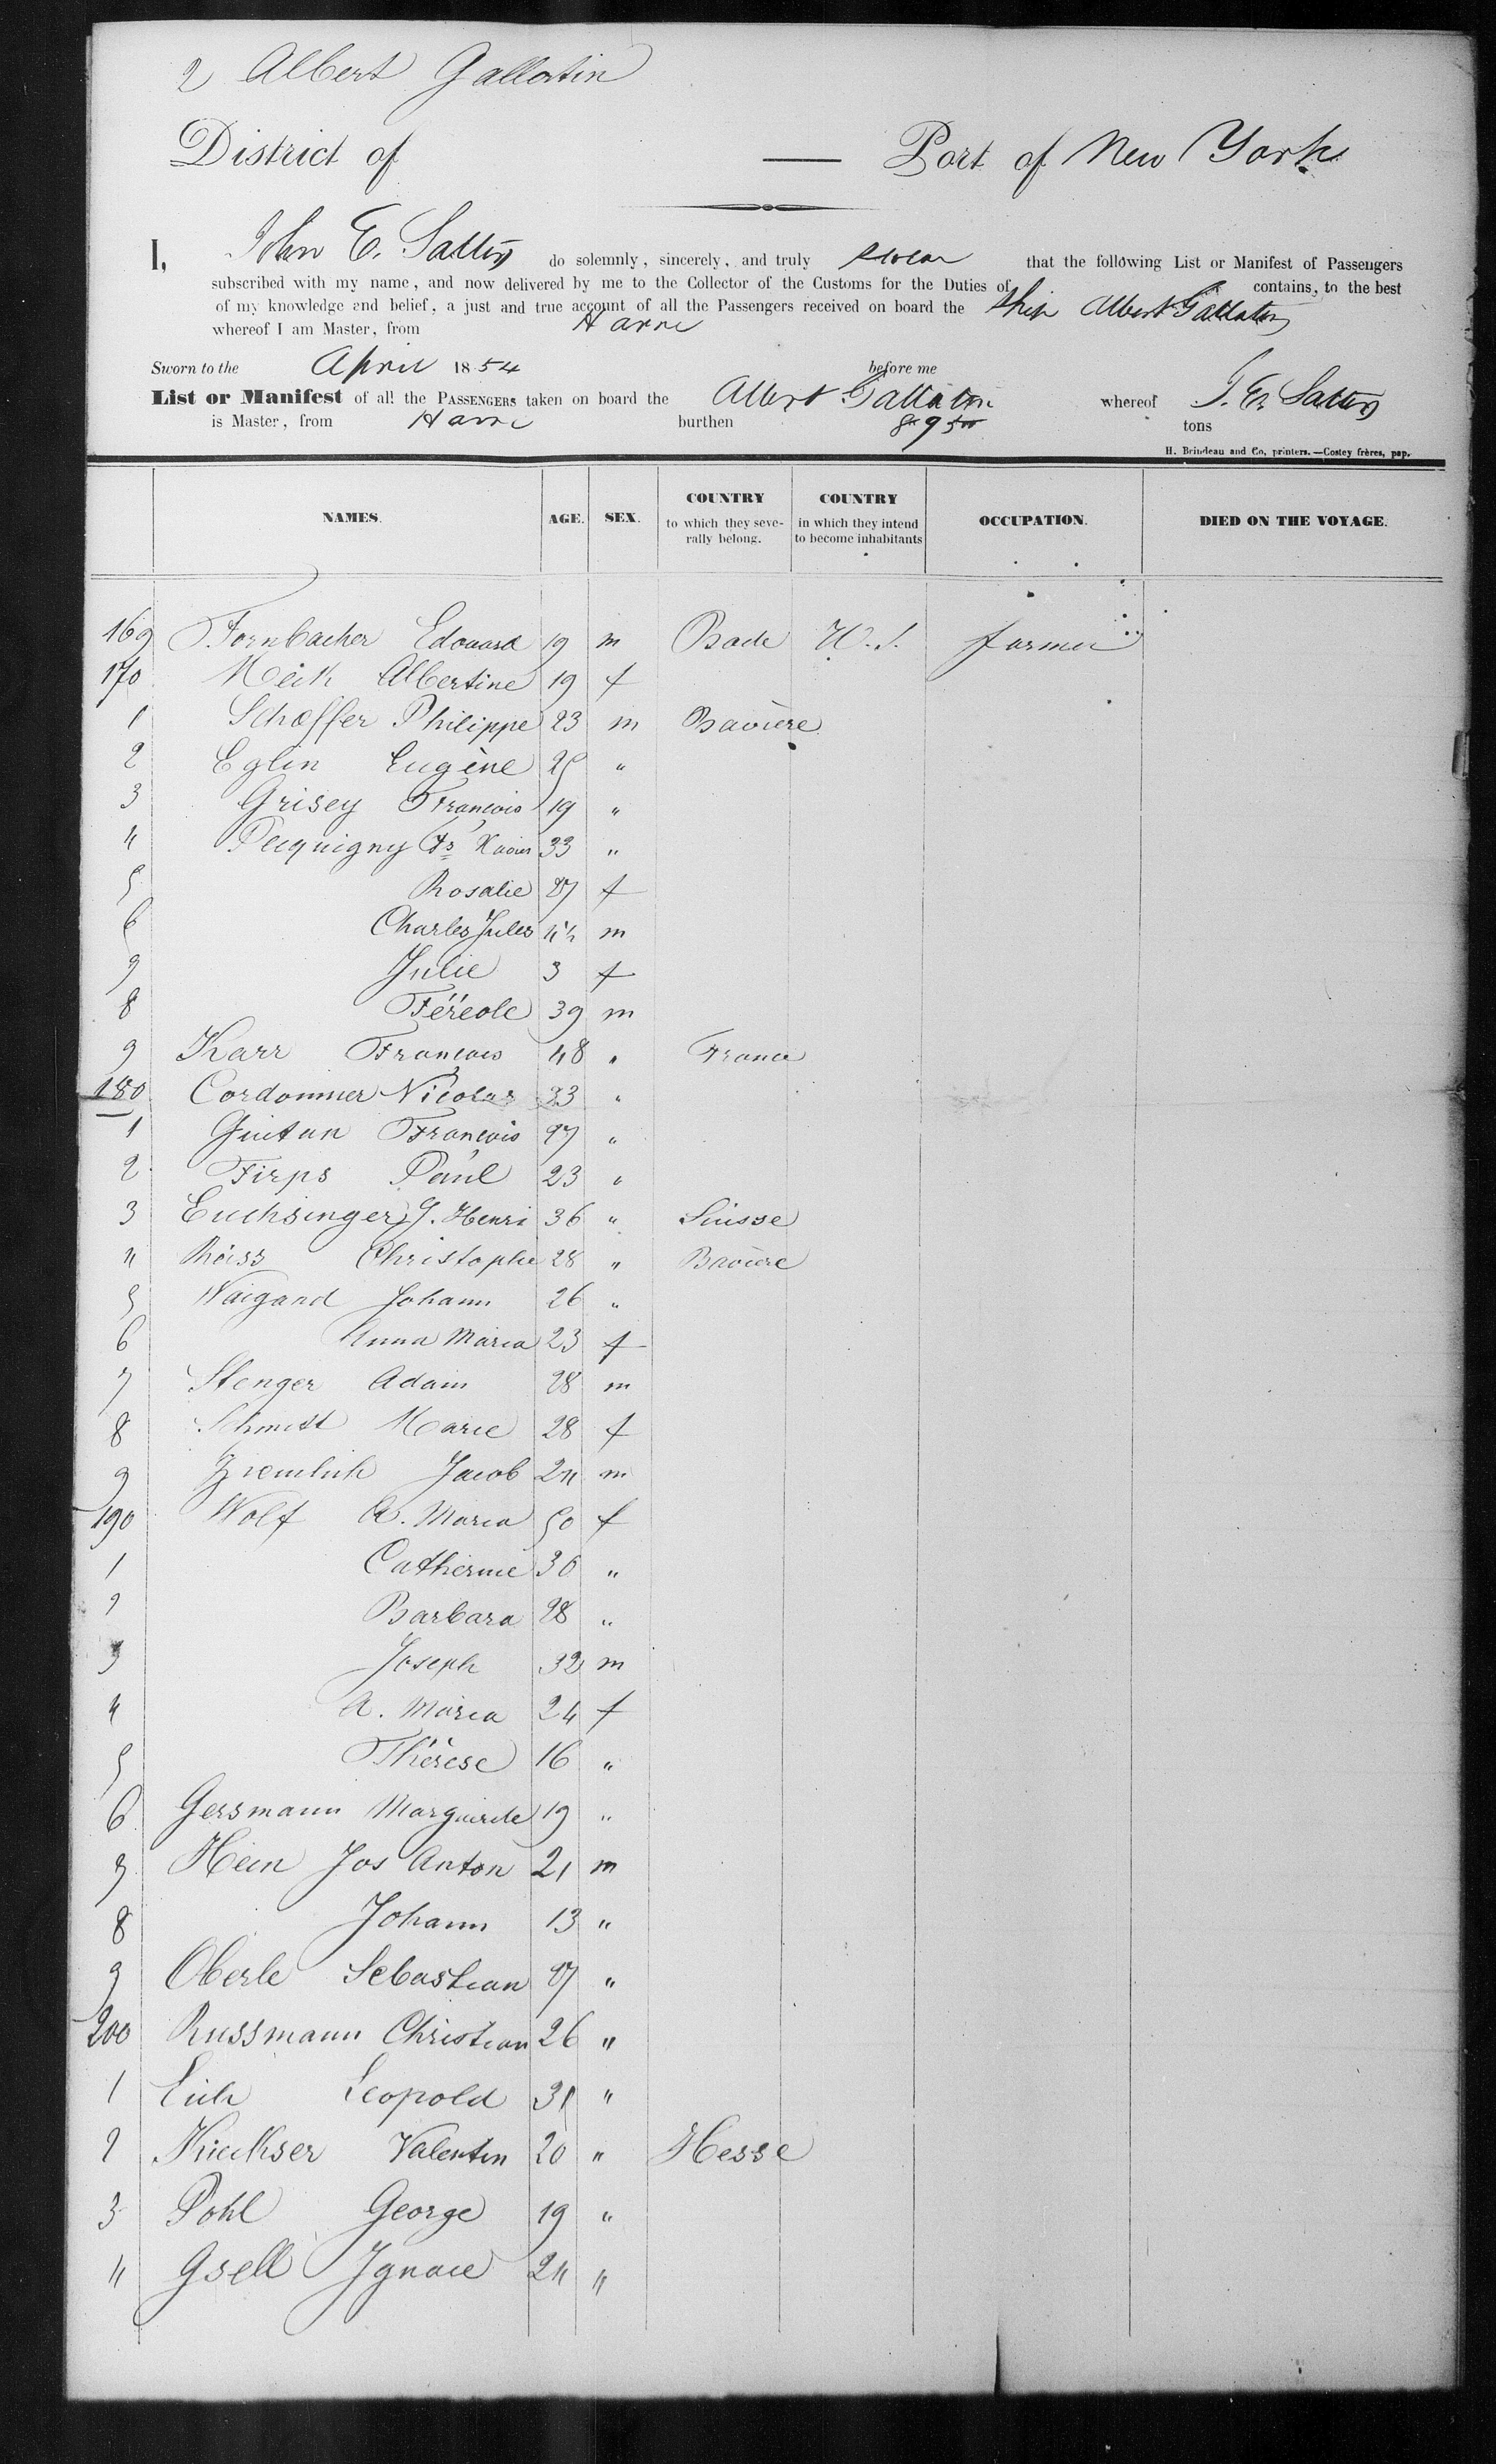 2 Albert Gallatin
District of — Port of New York
I, John E. do solemnly, sincerely, and truly swear that the following List or Manifest of Passengers
subscribed with my name, and now delivered by me to the Collector of the Customs for the Duties of contains, to the best
of my knowledge and belief, a just and true account of all the Passengers received on board the Ship Albert Gallatin
whereof I am Master, from Havre
Sworn to the April 1854 before me
List or Manifest of all the PASSENGERS taken on board the Albert Gallatin whereof
is Master, from Havre burthen tons
H. Brindeau and Co, printers.—Costey frères, pap.
NAMES. AGE. SEX. COUNTRY to which they severally belong. COUNTRY in which they intend to become inhabitants OCCUPATION. DIED ON THE VOYAGE.
169 Fornbacher Edouard 19 m Bade U.S. farmer
170 Meik Albertine 19 f
1 Schæffer Philippe 23 m Bavière
2 Eglin Eugène 25 "
3 Grisey François 19 "
4 Pequigny Fs Xavier 33 "
5 Rosalie 27 f
6 Charles Jules m
7 Julie 3 f
8 Féréole 39 m
9 Karr François 48 " France
180 Cordonnier Nicolas 23 "
1 François 27 "
2 Firps Paul 23 "
3 Euchsinger J. Henri 36 " Suisse
4 Röiss Christophe 28 " Bavière
5 Waigand Johann 26 "
6 Anna Maria 23 f
7 Stenger Adam 28 m
8 Schmitt Marie 28 f
9 Jacob 24 m
190 Wolf A. Maria 50 f
1 Catherine 36 "
2 Barbara 28 "
3 Joseph 32 m
4 A. Maria 24 f
5 Thérèse 16 "
6 Gersmann Marguerite 19 "
7 Hein Jos Anton 21 m
8 Johann 13 "
9 Oberle Sebastian 27 "
200 Russmann Christian 26 "
1 Eich Leopold 31 "
2 Valentin 20 " Hesse
3 Pohl George 19 "
4 Gsell Ignace 24 "